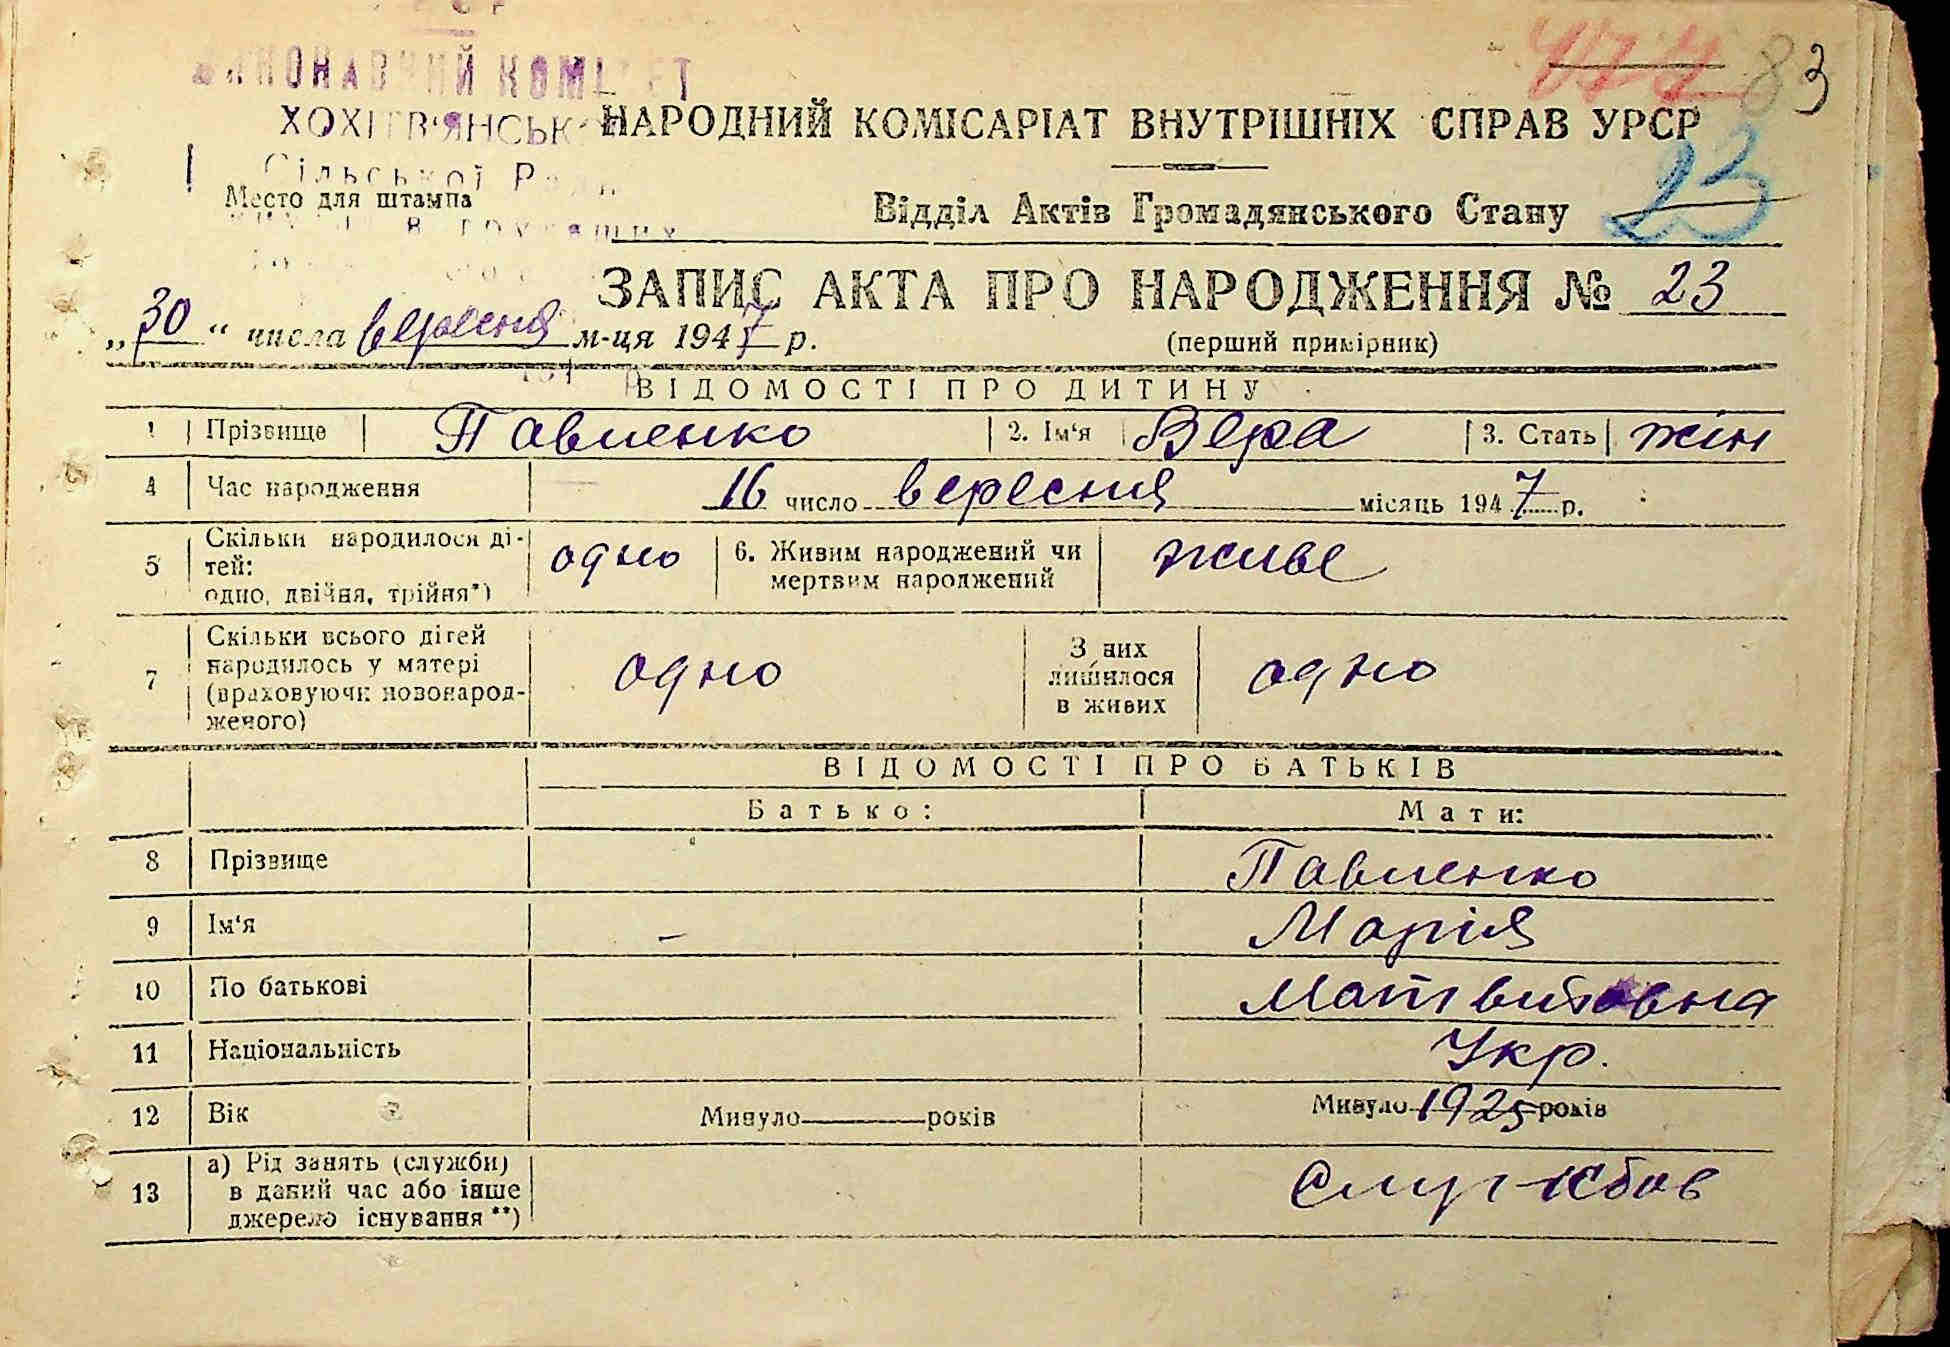 ВИКОНАВЧИЙ КОМІТЕТ
477 83
ХОХІТВ'ЯНСЬК НАРОДНИЙ КОМІСАРІАТ ВНУТРІШНІХ СПРАВ УРСР
Сільської Ради
Место для штампа
Відділ Актів Громадянського Стану 23
ЗАПИС АКТА ПРО НАРОДЖЕННЯ № 23
„30“ числа вересня м-ця 1947 р. (перший примірник)
ВІДОМОСТІ ПРО ДИТИНУ
1 Прізвище Павленко 2. Ім'я Вера 3. Стать жін
4 Час народження 16 число вересня місяць 1947 р.
5 Скільки народилося ді-
тей:
одно, двійня, трійня*) одно 6. Живим народжений чи
мертвим народжений живе
7 Скільки всього дітей
народилось у матері
(враховуючи новонарод-
женого) одно З них
лишилося
в живих одно
ВІДОМОСТІ ПРО БАТЬКІВ
Батько: Мати:
8 Прізвище Павленко
9 Ім'я – Марія
10 По батькові
11 Національність Укр.
12 Вік Минуло років Минуло 1925 років
13 а) Рід занять (служби)
в даний час або інше
джерело існування **)